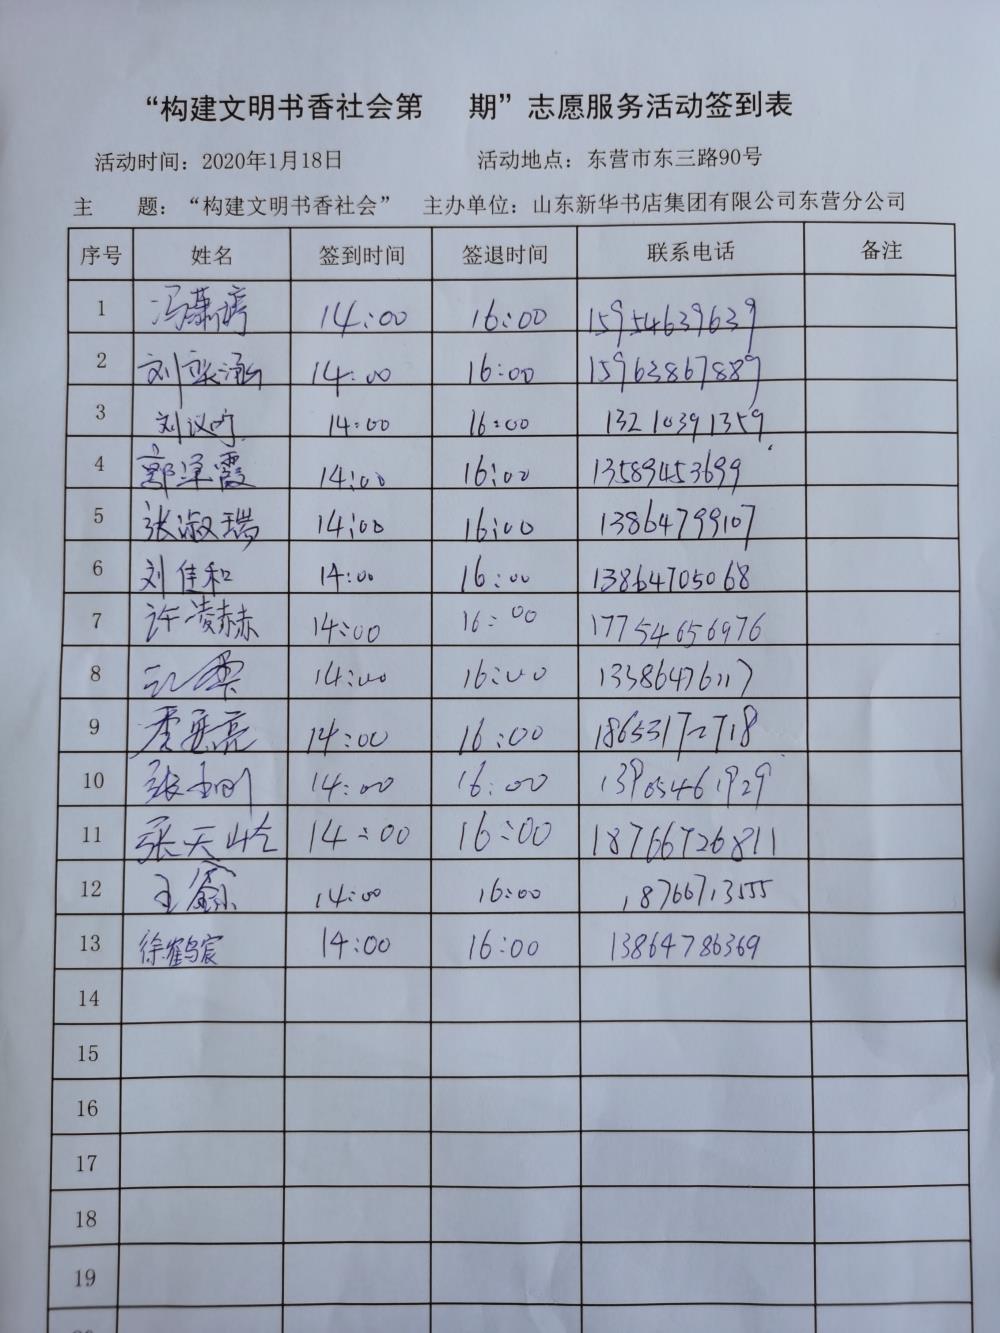 “构建文明书香社会第 期”志愿服务活动签到表
活动时间：2020年1月18日 活动地点：东营市东三路90号
主 题：“构建文明书香社会” 主办单位：山东新华书店集团有限公司东营分公司
序号 姓名 签到时间 签退时间 联系电话 备注
1 冯 14:00 16:00 15954639639
2 刘 14:00 16:00 15963867889
3 刘议 14:00 16:00 13210391359
4 郭泽霞 14:00 16:00 13589453699
5 张淑瑞 14:00 16:00 13864799107
6 刘佳和 14:00 16:00 13864705068
7 许凌赫 14:00 16:00 17754656976
8 14:00 16:00
9 李 亮 14:00 16:00 18653172718
10 张 刚 14:00 16:00 13905461929
11 张天屹 14:00 16:00 18766726811
12 王鑫 14:00 16:00 18766713555
13 徐鹤宸 14:00 16:00 13864786369
14
15
16
17
18
19